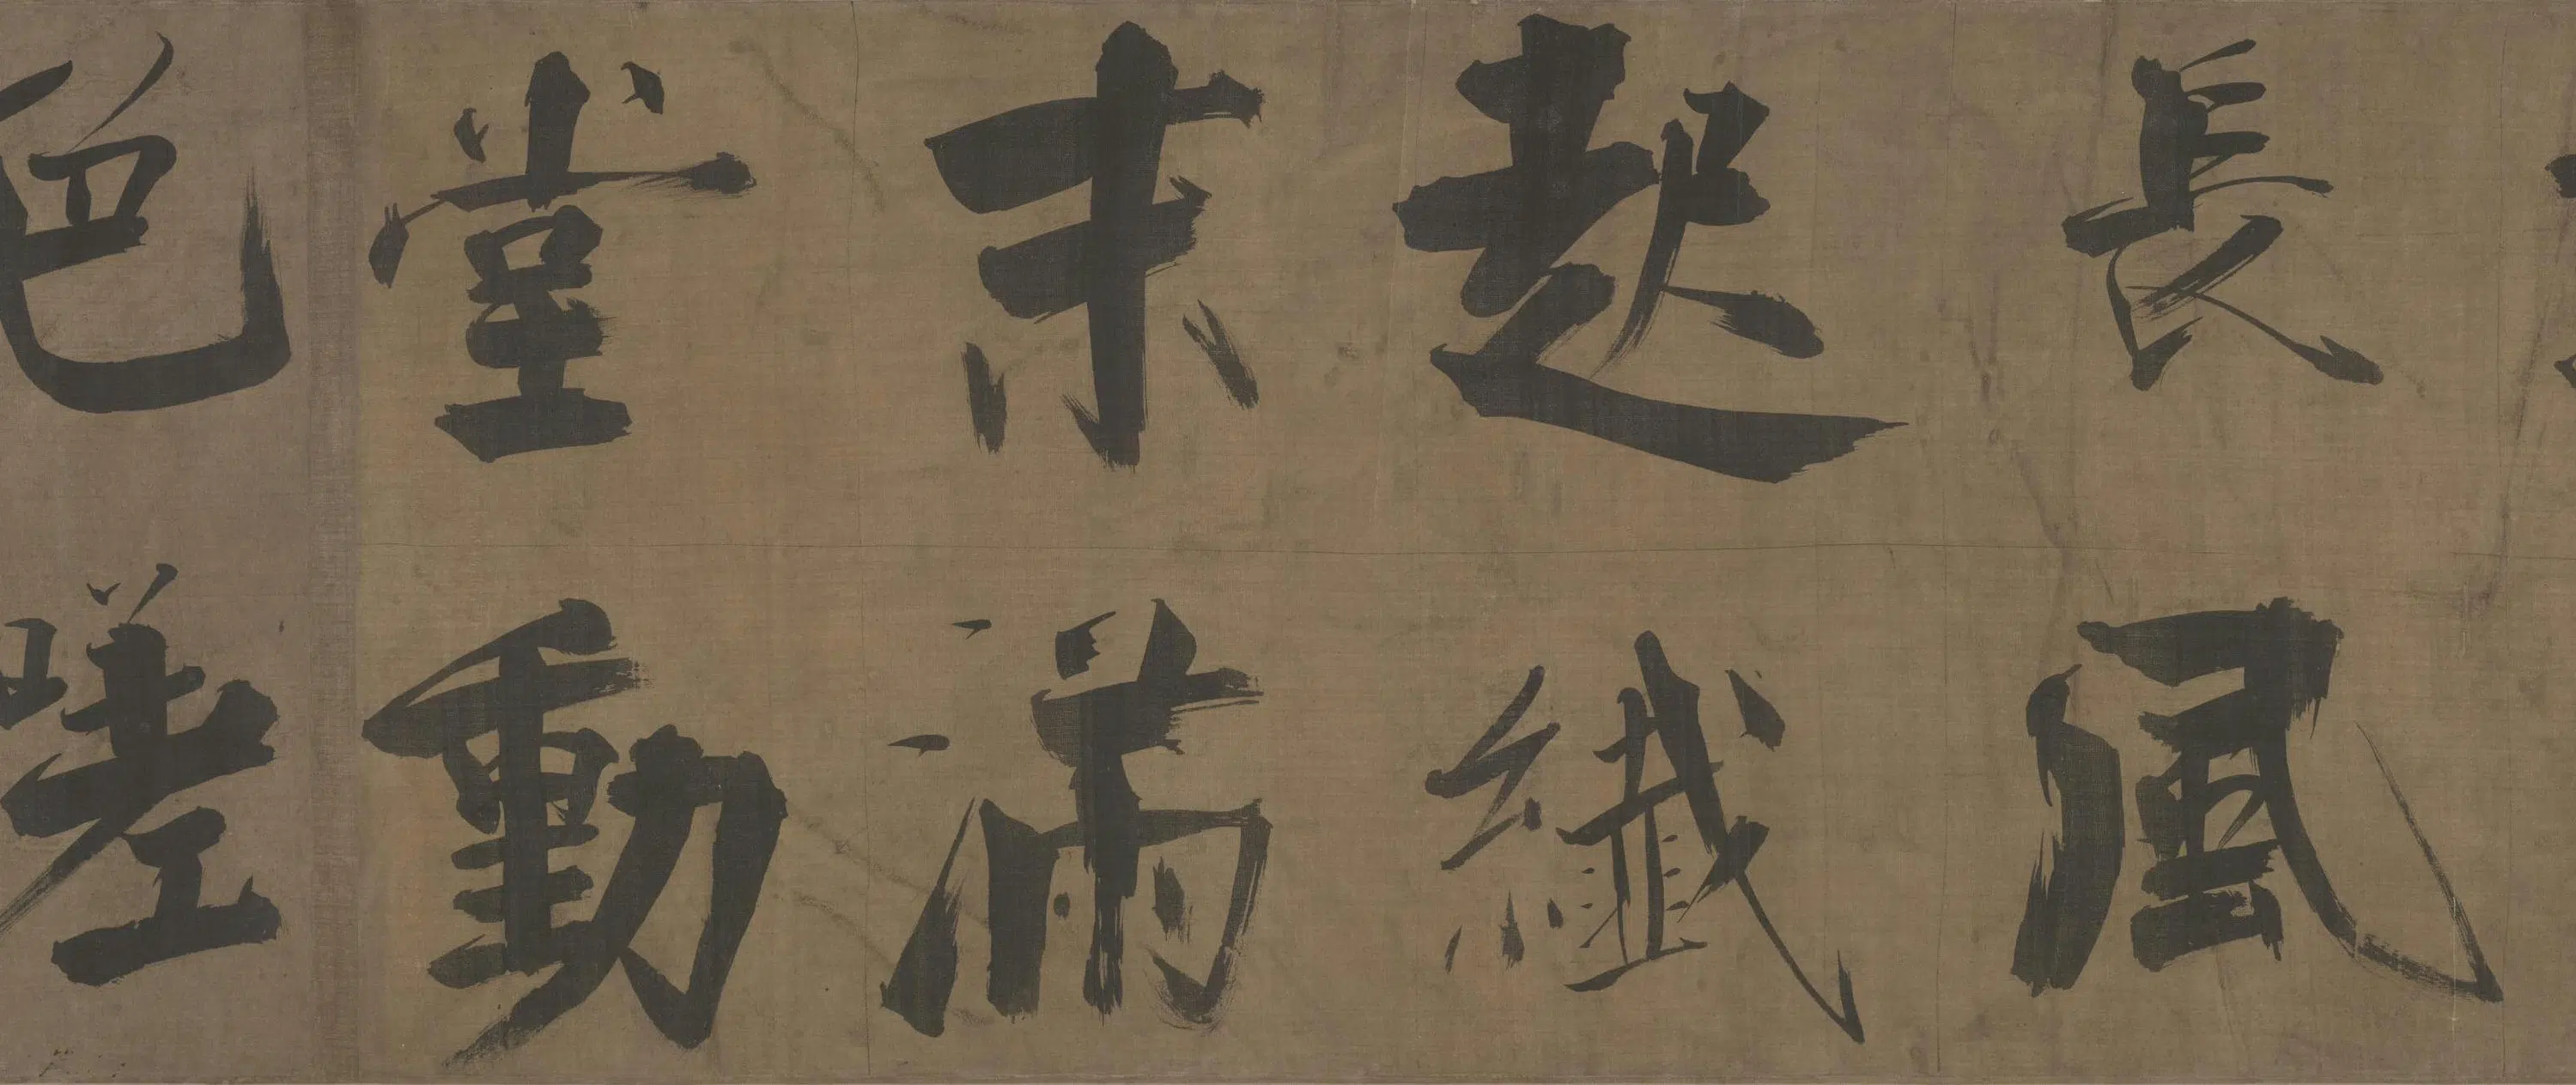 長風
起纖
末滿
堂動
色嗟